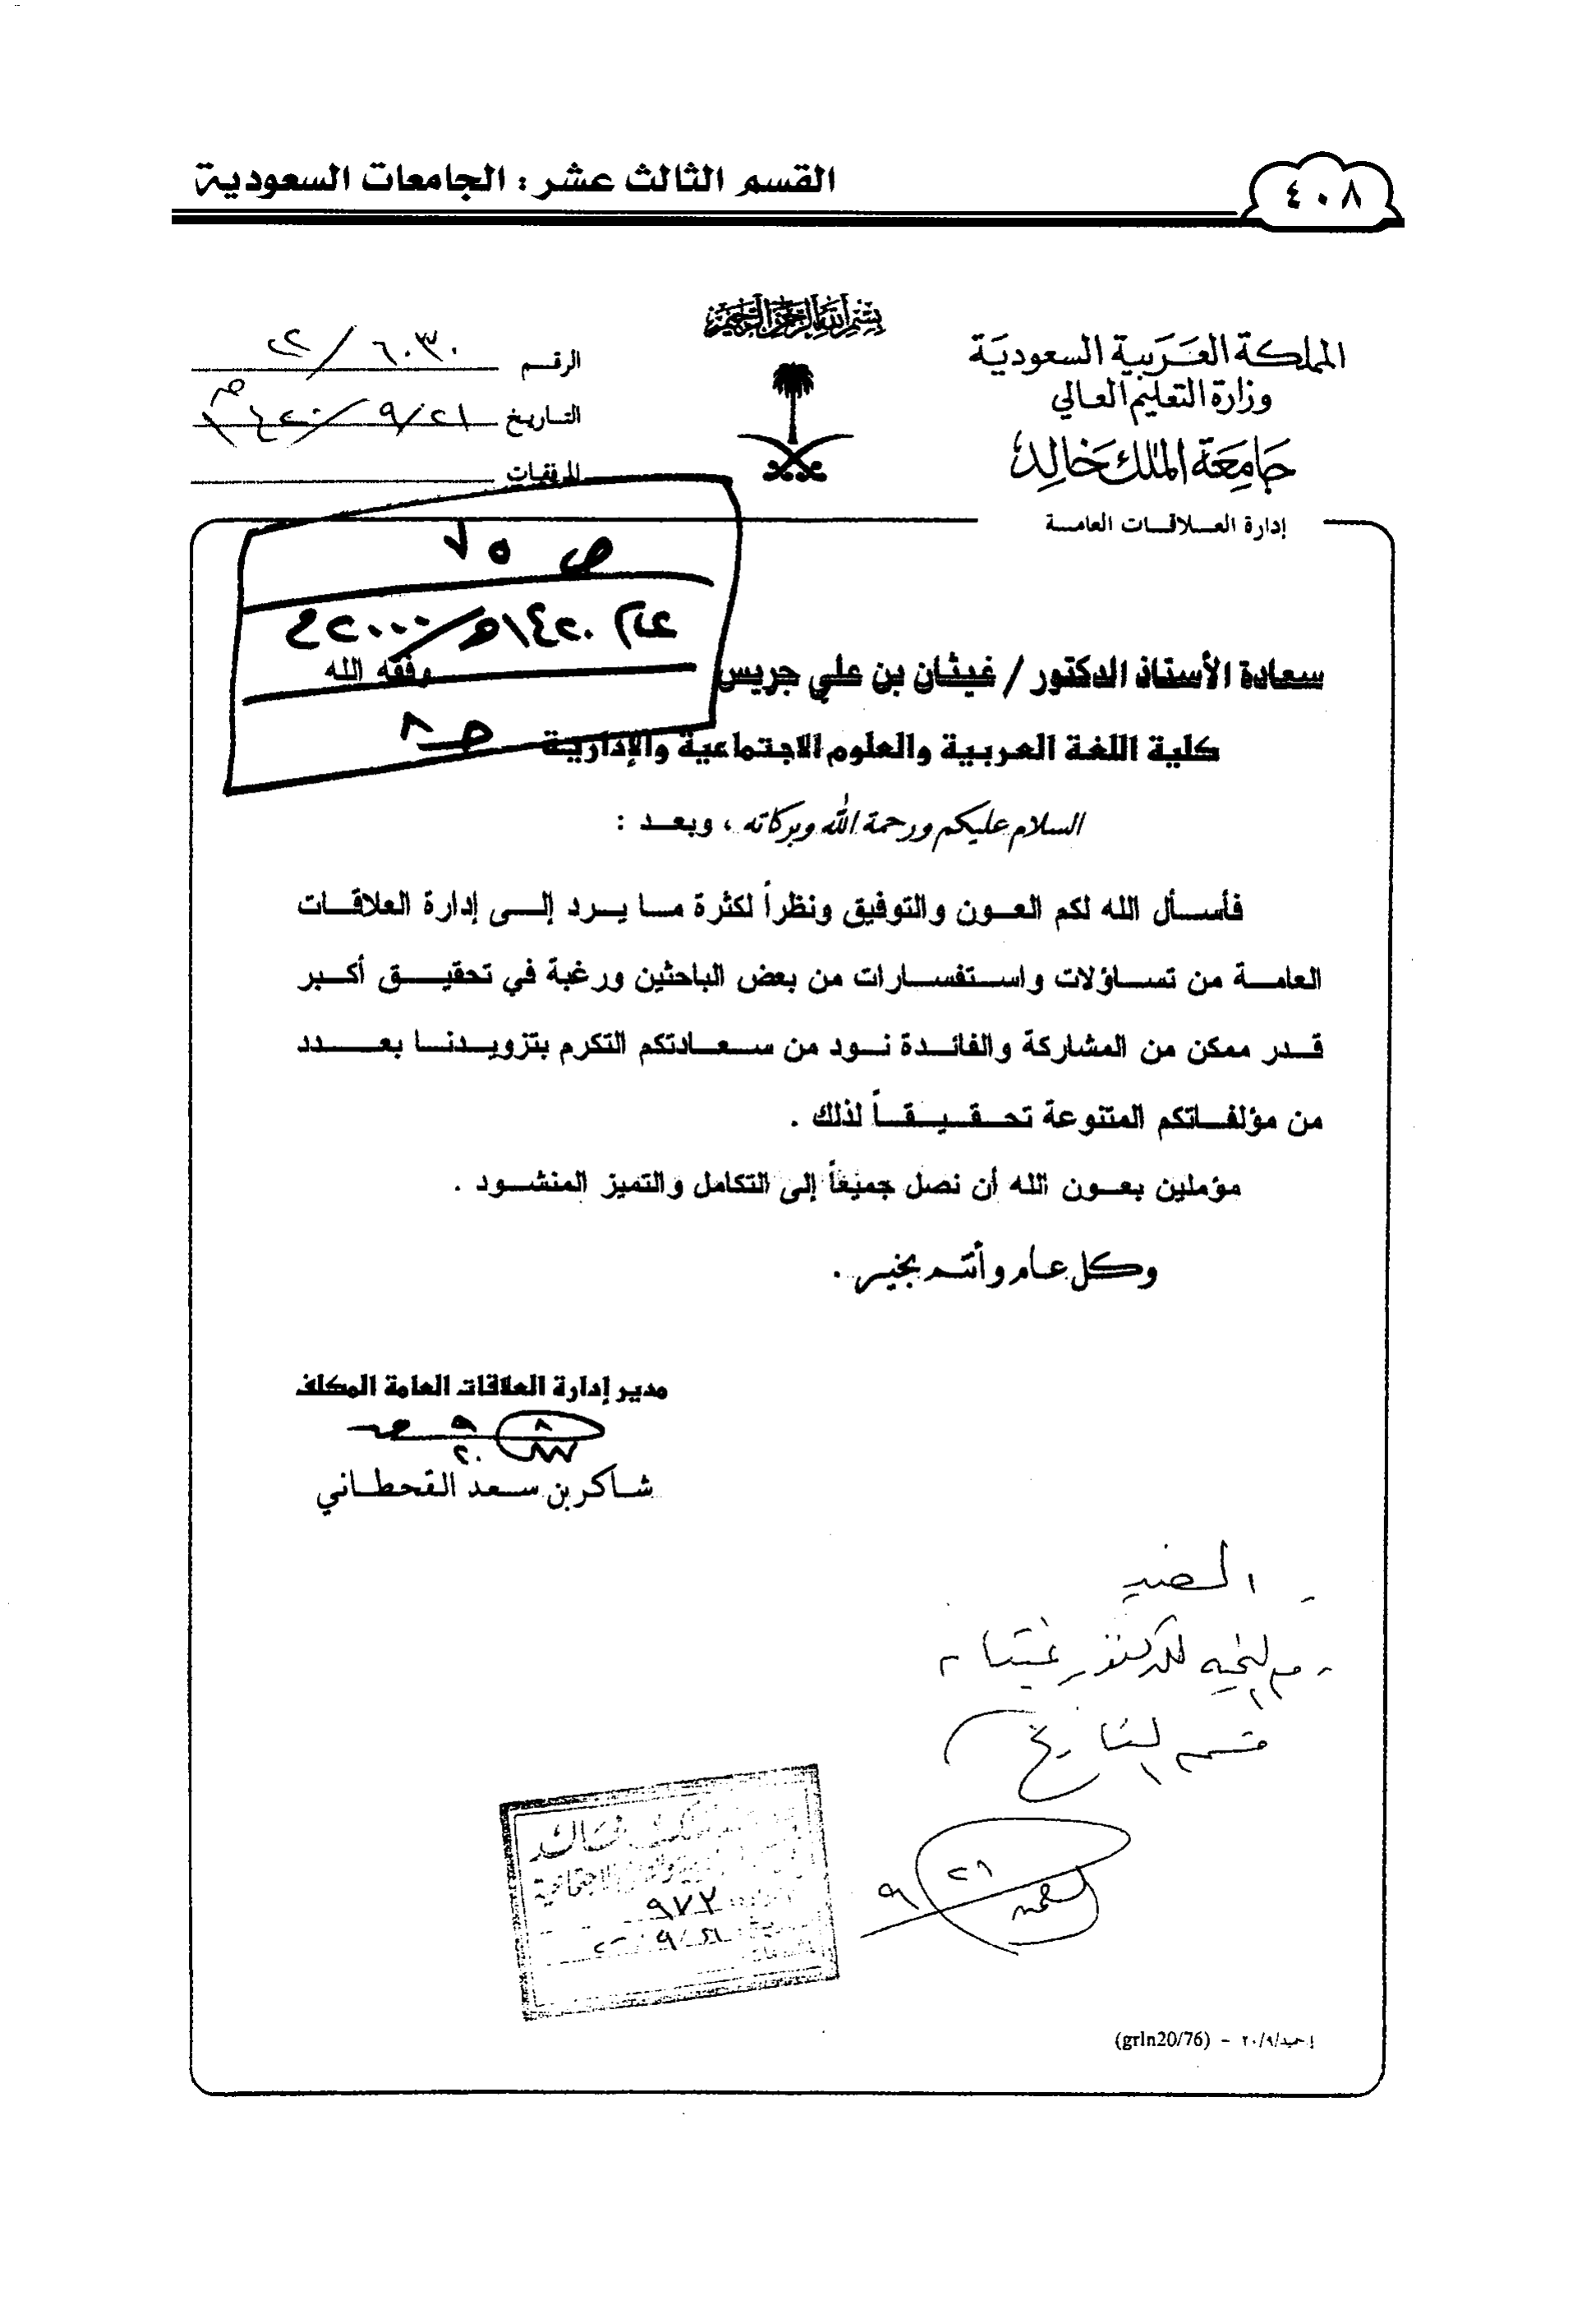 القسم الثالث عشر : الجامعات السعودية
٤٠٨
بسم الله الرحمن الرحيم
المملكة العربية السعودية
وزارة التعليم العالي
جامعة الملك خالد
إدارة العلاقات العامة
الرقم ٢٢/٦٠٣٠
التاريخ ١٤٢٠/٩/٢١ هـ
المرفقات
ص ٧٥
عام ١٤٢٠هـ/٢٠٠٠م
ص ٨
سعادة الأستاذ الدكتور / غيثان بن علي جريس وفقه الله
كلية اللغة العربية والعلوم الاجتماعية والإدارية
السلام عليكم ورحمة الله وبركاته ، وبعد :
فأسأل الله لكم العون والتوفيق ونظراً لكثرة ما يرد إلى إدارة العلاقات
العامة من تساؤلات واستفسارات من بعض الباحثين ورغبة في تحقيق أكبر
قدر ممكن من المشاركة والفائدة نود من سعادتكم التكرم بتزويدنا بعدد
من مؤلفاتكم المتنوعة تحقيقاً لذلك .
مؤملين بعون الله أن نصل جميعاً إلى التكامل والتميز المنشود .
وكل عام وأنتم بخير .
مدير إدارة العلاقات العامة المكلف
شاكر بن سعد القحطاني
للدكتور غيثان
قسم التاريخ
٢١
٩
٩٧٢
٢٠/٩/٢١
إحميد/٢٠/٩ - (grln20/76)